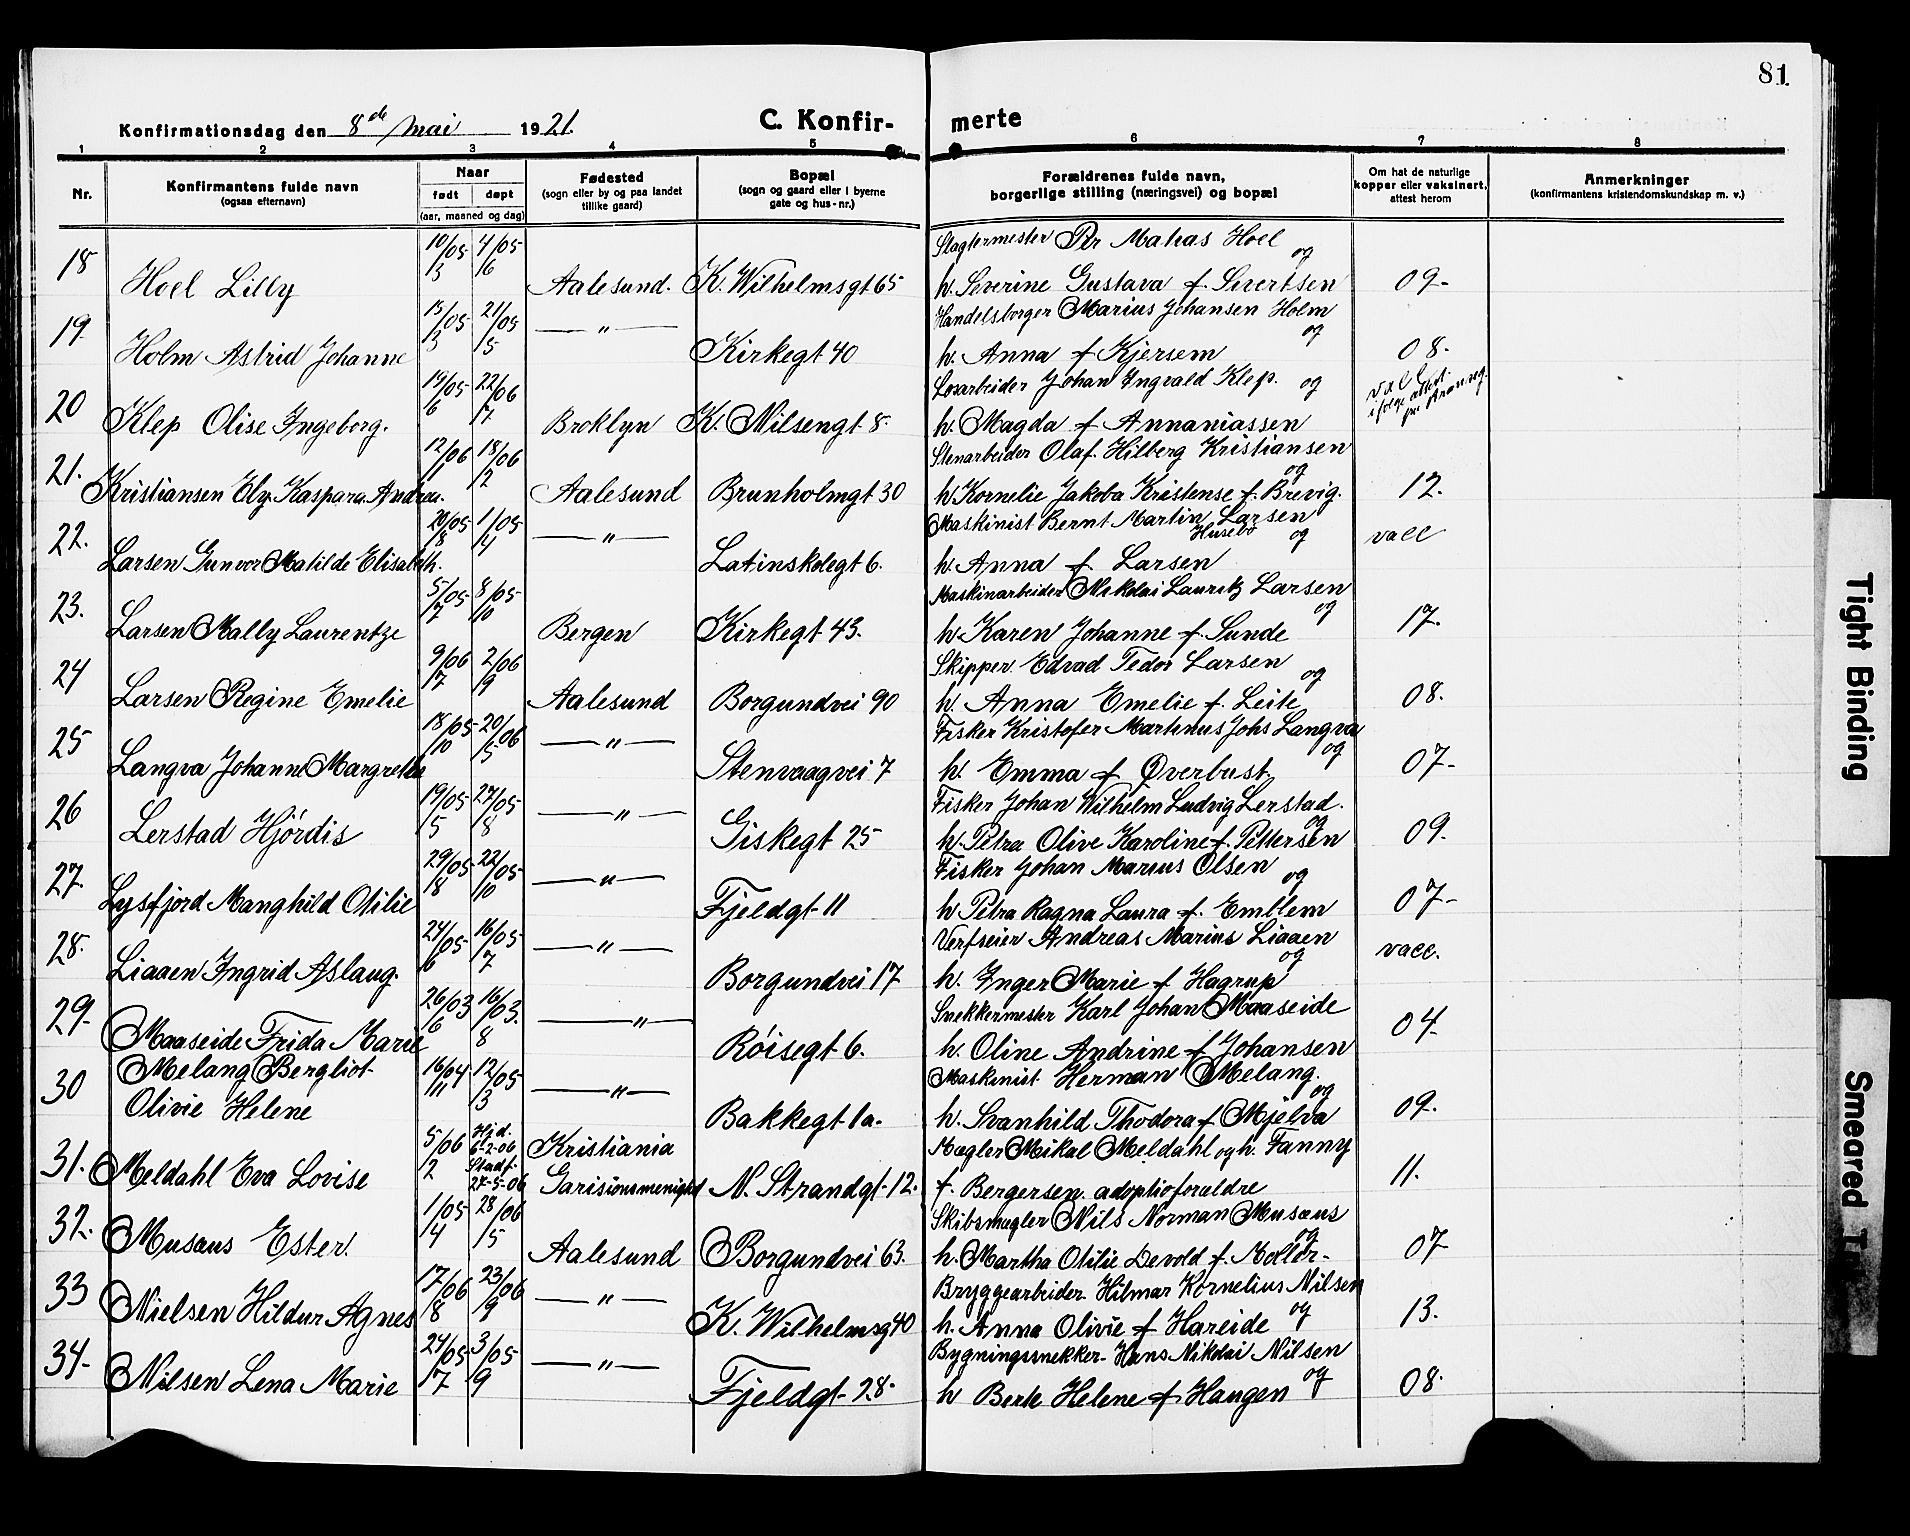 81
Konfirmationsdag den 8de mai 1921.
C. Konfirmerte
1 2 3 4 5 6 7 8
Nr.
Konfirmantens fulde navn
(ogsaa efternavn)
Naar
født døpt
(aar, maaned og dag)
Fødested
(sogn eller by og paa landet
tillike gaard)
Bopæl
(sogn og gaard eller i byerne
gate og hus-nr.)
Forældrenes fulde navn,
borgerlige stilling (næringsvei) og bopæl
Om hat de naturlige
kopper eller vaksinert,
attest herom
Anmerkninger
(konfirmantens kristendomskundskap m. v.)
18 Hoel Lilly 10/3 05 4/6 05 Aalesund. K. Wilhelmsgt 65
Slagtermester Per Matias Hoel og
h. Severine Gustava f. Sivertsen 09-
19. Holm Astrid Johanne 15/3 05 21/5 05 —"— Kirkegt 40
Handelsborger Marius Johansen Holm og
h. Anna f Kjersem 08-
20 Klep Olise Ingeborg. 19/6 05 22/7 06 Broklyn K. Nilsengt 8-
Losarbeider Johan Ingvald Klep. og
h. Magda f Annaniassen
21. Kristiansen Ely Kaspara Andrea. 12/1 06 18/2 06 Aalesund Brunholmgt 30
Stenarbeider Olaf Hilberg Kristiansen og
h Kornelie Jakoba Kristense f. Brevig. 12.
22. Larsen Gunvor Matilde Elisabeth. 20/8 05 1/4 05 —"— Latinskolegt 6.
Maskinist Bernt Martin Larsen Husebø og
h. Anna f. Larsen vacc
23. Larsen Mally Laurentze 5/7 05 8/10 05 Bergen Kirkegt 43.
Maskinarbeider Nikolai Lauritz Larsen og
h Karen Johanne f. Sunde 17.
24 Larsen Regine Emelie 9/7 06 2/9 06 Aalesund Borgundvei 90
Skipper Edvad Tedor Larsen og
h. Anna Emelie f. Leite 08.
25 Langva Johanne Margrethe 18/10 05 20/5 06 —"— Stenvaagvei 7
Fisker Kristofer Martinus Johs Langva og
h. Emma f Øverbust. 07-
26 Lerstad Hjördis 19/5 05 27/8 05 —"— Giskegt 25
Fisker Johan Wilhelm Ludvig Lerstad. og
h. Petra Olive Karoline f. Pettersen 09.
27. Lysfjord Manghild Otilie 29/8 05 22/10 05 —"— Fjeldgt 11
Fisker Johan Marius Olsen og
h Petra Ragna Laura f. Emblem 07-
28. Liaaen Ingrid Aslaug. 24/6 05 16/7 05 —"— Borgundvei 17
Verfseier Andreas Marius Liaaen og
h. Inger Marie f Hagrup vacc.
29- Maaseide Frida Marie 26/6 03 16/8 03. —"— Röisegt 6.
Snekkermester Karl Johan Maaseide
h. Oline Andrine f Johansen 04-
30 Melang Bergliot Olivie Helene 16/11 04 12/3 05 —"— Bakkegt 1a.
Maskinist Herman Melang. og
h. Svanhild Thodora f Mjelva 09.
31. Meldahl Eva Lovise 5/2 06 Hjd. 6-2-06 Stadf. 27-5-06 Kristiania Garisionsmenighed N. Strandgt 12.
Mægler Mikal Meldahl og h. Fanny
f. Bergersen adoptioforældre 11.
32. Musæus Ester. 1/4 05 28/5 06 Aalesund Borgundvei 63.
Skibsmægler Nils Norman Musæus og
h. Martha Otilie Devold f. Moller- 07
33 Nielsen Hildur Agnes 17/8 06 23/9 06 —"— K. Wilhelmsg 40
Bryggearbeider Hilmar Kornelius Nilsen og
h. Anna Olivie f Hareide 13.
34- Nilsen Lena Marie 24/7 05 3/9 05 —"— Fjeldgt 28-
Bygningssnekker Hans Nikolai Nilsen og
h Berte Helene f Haugen 08-
Tight Binding
Smeared